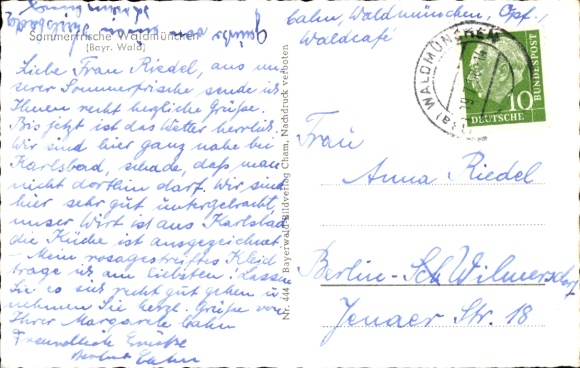 Sommerfrische Waldmünchen
(Bayr. Wald)
Liebe Frau Riedel, aus un-
serer Sommerfrische sende ich
Ihnen recht herzliche Grüße.
Bis jetzt ist das Wetter herrlich.
Wir sind hier ganz nahe bei
Karlsbad, schade, daß man
nicht dorthin darf. Wir sind
hier sehr gut untergebracht,
unser Wirt ist aus Karlsbad
die Küche ist ausgezeichnet.
- Mein rosagestreiftes Kleid
trage ich am liebsten! Lassen
Sie es sich recht gut gehen u.
nehmen Sie herzl. Grüße von
Ihrer Margarete Cahn
Freundliche Grüße
Cahn
Nr. 444 Bayerwald-Bildverlag Cham, Nachdruck verboten
Cahn, Waldmünchen, Opf.,
Waldcafé
WALDMÜNCHEN
10
DEUTSCHE
BUNDESPOST
Frau
Anna Riedel
Berlin-Sch Wilmersdorf
Jenaer Str. 18